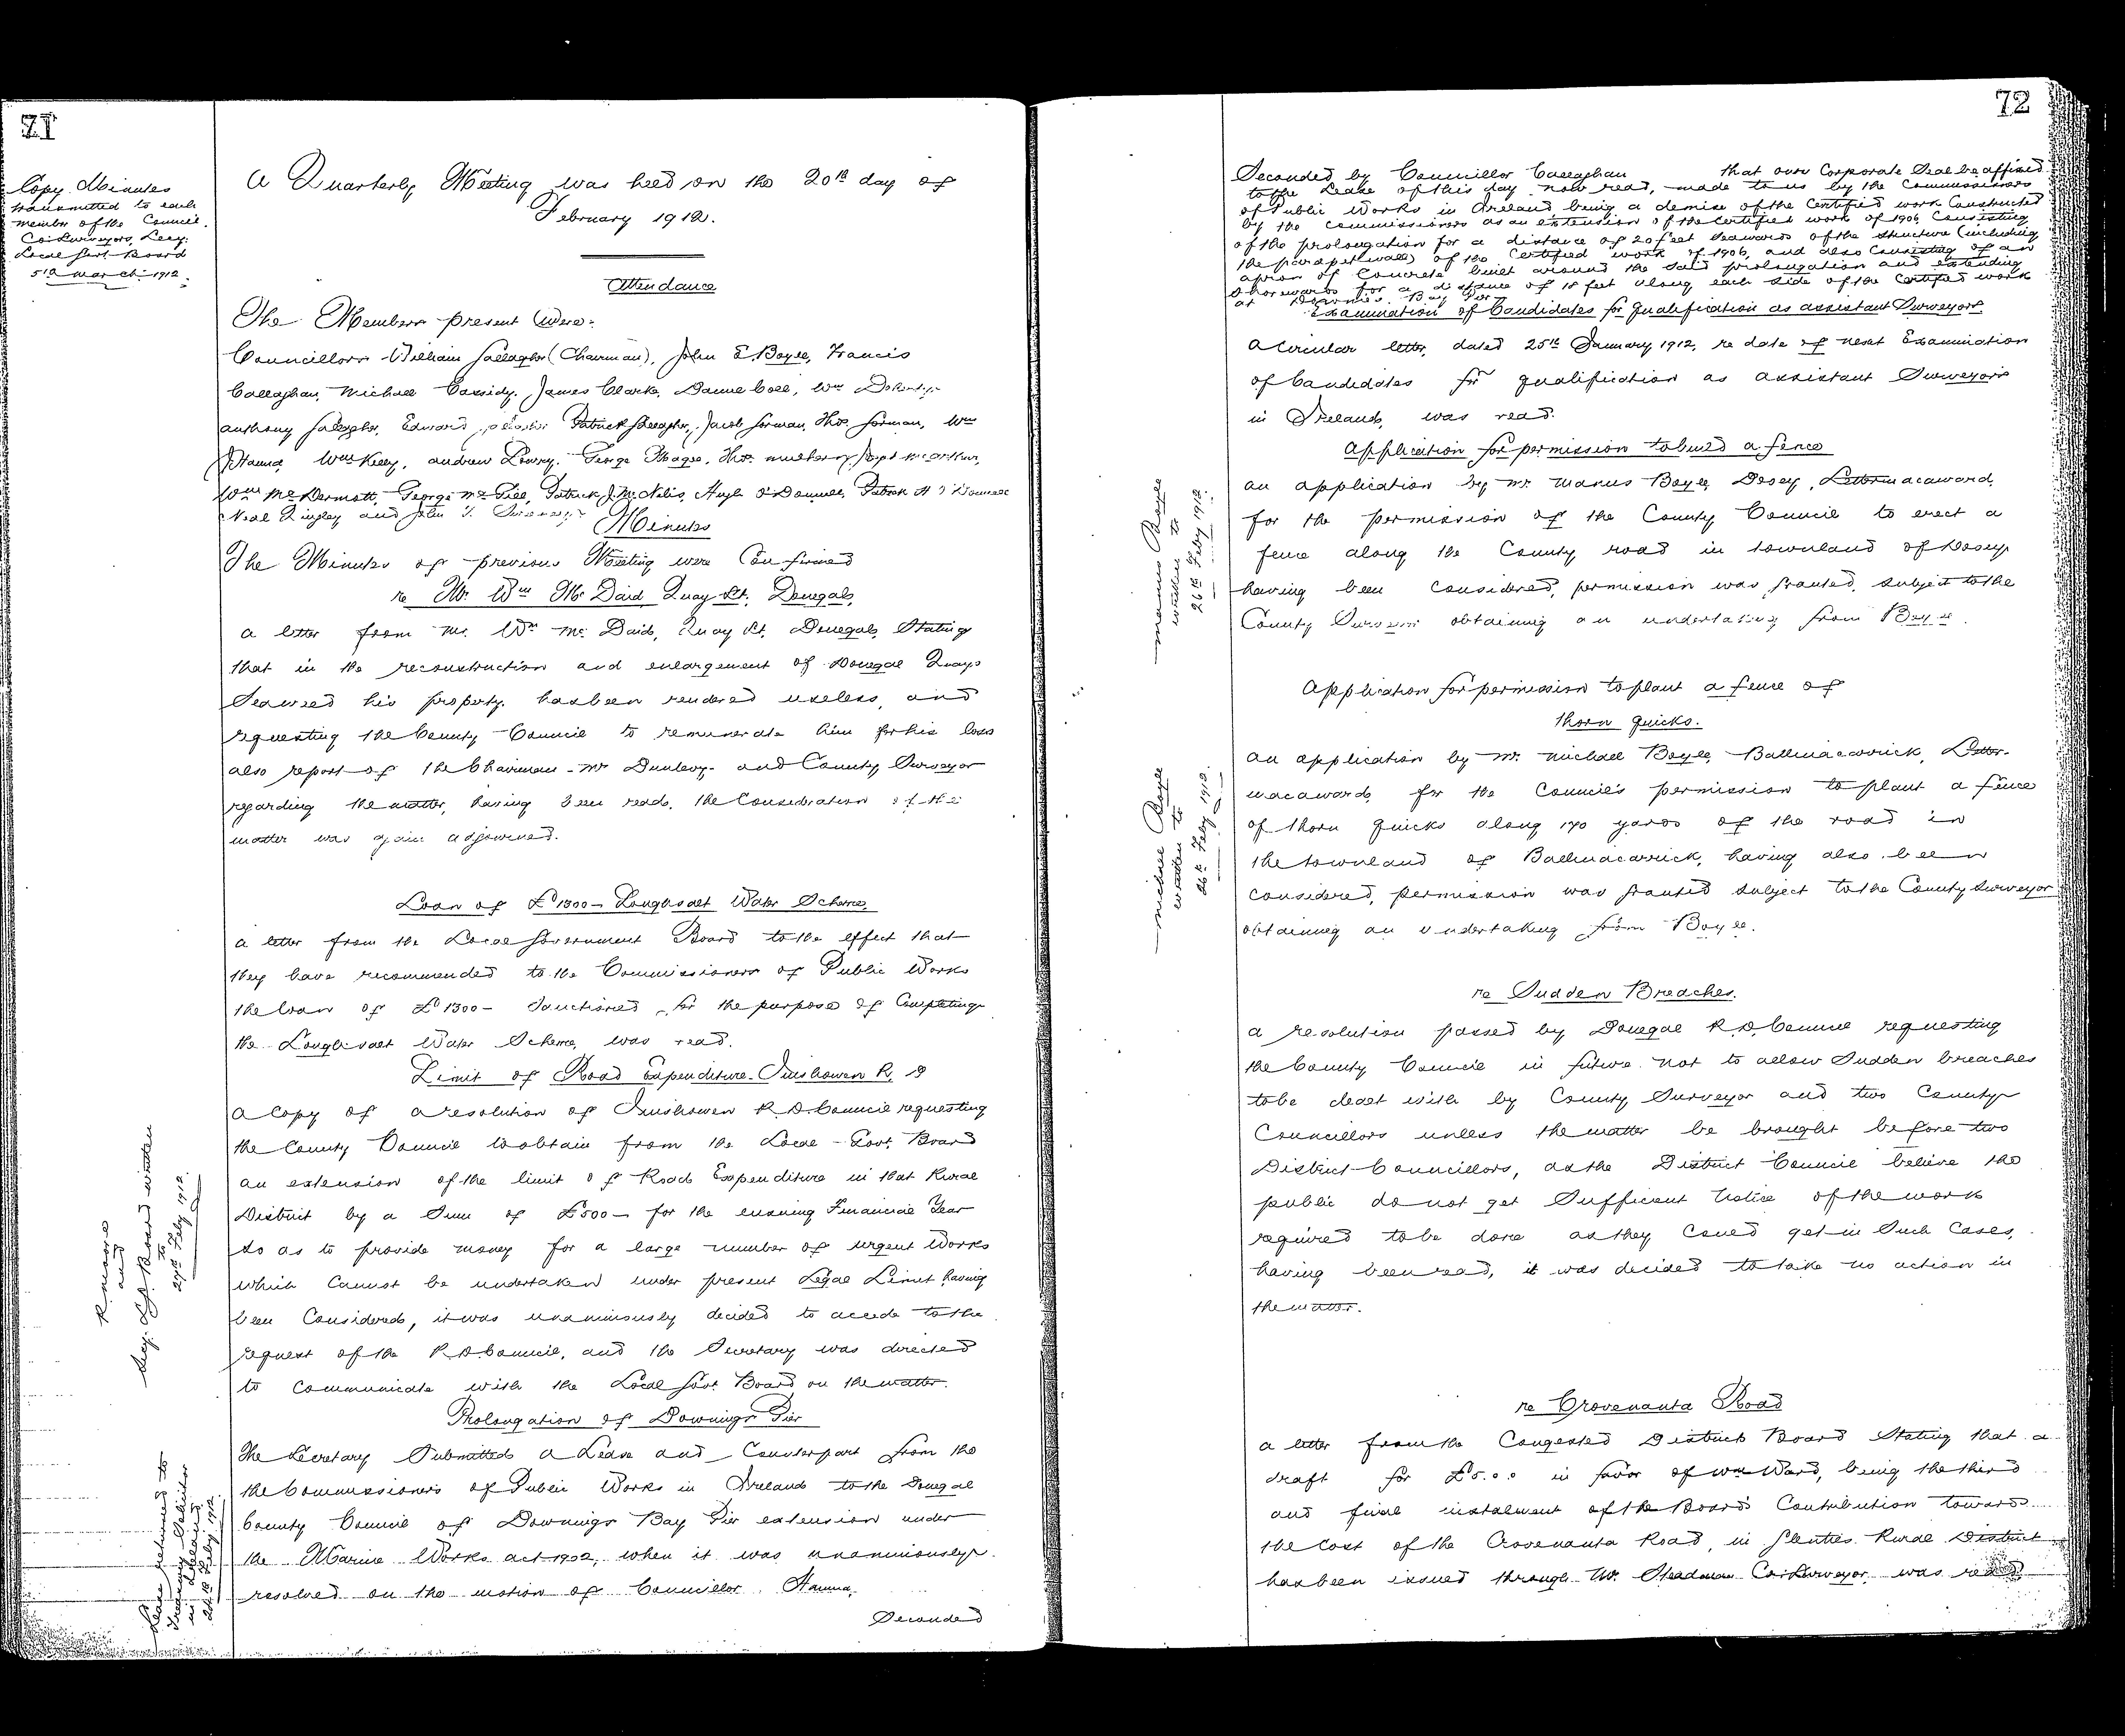 71
Copy Minutes
transmitted to each
member of the Council.
Co: Surveyors, Secy.
Local Govt. Board
5th March 1912.
A Quarterly Meeting was held on the 20th day of
February 1912.
Attendance
The Members present were:-
Councillors William Gallagher (Chairman), John E Boyle, Francis
Callaghan, Michael Cassidy, James Clarke, Daniel Coll, Wm Doherty,
Anthony Gallagher, Edward Patrick Gallagher, Jacob Gorman, Thos. Gorman, Wm
Hanna, Wm Kelly, Andrew Lowry, George Magee, Thos.
Wm McDermott, George McGill, Patrick J. McNelis, Hugh O'Donnell, Patrick H O'Donnell
Neal Tingley and John T. Sweeney.
Minutes
The Minutes of previous Meeting were Confirmed
re Mr. Wm McDaid, Quay St., Donegal,
A letter from Mr. Wm McDaid, Quay St. Donegal, Stating
that in the reconstruction and enlargement of Donegal Quays
Seaweed his property has been rendered useless, and
requesting the County Council to remunerate him for his loss
also report of the Chairman - Mr Dunlevy - and County Surveyor
regarding the matter, having been read, the Consideration of the
matter was again adjourned.
Loan of £1300 - Loughsalt Water Scheme.
A letter from the Local Government Board to the effect that
they have recommended to the Commissioners of Public Works
the loan of £1300 - Sanctioned for the purpose of Completing
the Loughsalt Water Scheme, was read.
Limit of Road Expenditure - Inishowen R. D
A copy of a resolution of Inishowen R.D. Council requesting
the County Council to obtain from the Local Govt. Board
an extension of the limit of Road Expenditure in that Rural
District by a Sum of £500 - for the ensuing Financial Year
so as to provide money for a large number of urgent Works
which Cannot be undertaken under present Legal Limit having
been Considered, it was unanimously decided to accede to the
request of the R.D. Council, and the Secretary was directed
to communicate with the Local Govt. Board on the matter.
and
Secy. L.G. Board written
to
27th Feby 1912.
Prolongation of Downings Pier
The Secretary Submitted a Lease and Counterpart from the
the Commissioners of Public Works in Ireland to the Donegal
County Council of Downings Bay Pier extension under
the Marine Works Act 1902, when it was unanimously
resolved on the motion of Councillor Hanna,
Seconded
Lease returned to
Treasury Solicitor
in Ireland
Feby 1912.
72
Seconded by Councillor Callaghan that our Corporate Seal be affixed
to the Lease of this day now read, made to us by the Commissioners
of Public Works in Ireland being a demise of the Certified work Constructed
by the Commissioners as an extension of the Certified work of 1906 Consisting
of the prolongation for a distance of 20 feet Seawards of the Structure (including
the parapet walls) of the Certified work of 1906, and also Consisting of an
apron of Concrete built around the said prolongation and extending
Shorewards for a distance of 18 feet along each side of the Certified work
at Downies Bay Pier.
Examination of Candidates for Qualification as Assistant Surveyors.
A Circular letter, dated 25th January 1912, re date of next Examination
of Candidates for qualification as Assistant Surveyors
in Ireland, was read.
Application for permission to build a fence
An application by Mr. Manus Boyle, Dooey, Lettermacaward,
for the permission of the County Council to erect a
fence along the County road in townland of Dooey
having been considered, permission was granted, subject to the
County Surveyor obtaining an undertaking from Boyle.
Manus Boyle
written to
26th Feby 1912.
Application for permission to plant a fence of
thorn quicks.
An application by Mr. Michael Boyle, Ballinacarrick, Letter-
macaward, for the Council's permission to plant a fence
of thorn quicks along 170 yards of the road in
the townland of Ballinacarrick, having also been
considered, permission was granted subject to the County Surveyor
obtaining an undertaking from Boyle.
Michael Boyle
written to
26th Feby 1912.
re Sudden Breaches.
A resolution passed by Donegal R.D. Council requesting
the County Council in future not to allow Sudden breaches
to be dealt with by County Surveyor and two County
Councillors unless the matter be brought before two
District Councillors, as the District Council believe the
public do not get Sufficient Notice of the work
required to be done as they Could get in Such Cases,
having been read, it was decided to take no action in
the matter.
re Crovenanta Road
A letter from the Congested Districts Board Stating that a
draft for £5.0.0 in favor of Wm Ward, being the third
and final instalment of the Board's Contribution towards
the Cost of the Crovenanta Road, in Glenties Rural District
has been issued through Mr. Steadman Co: Surveyor, was read